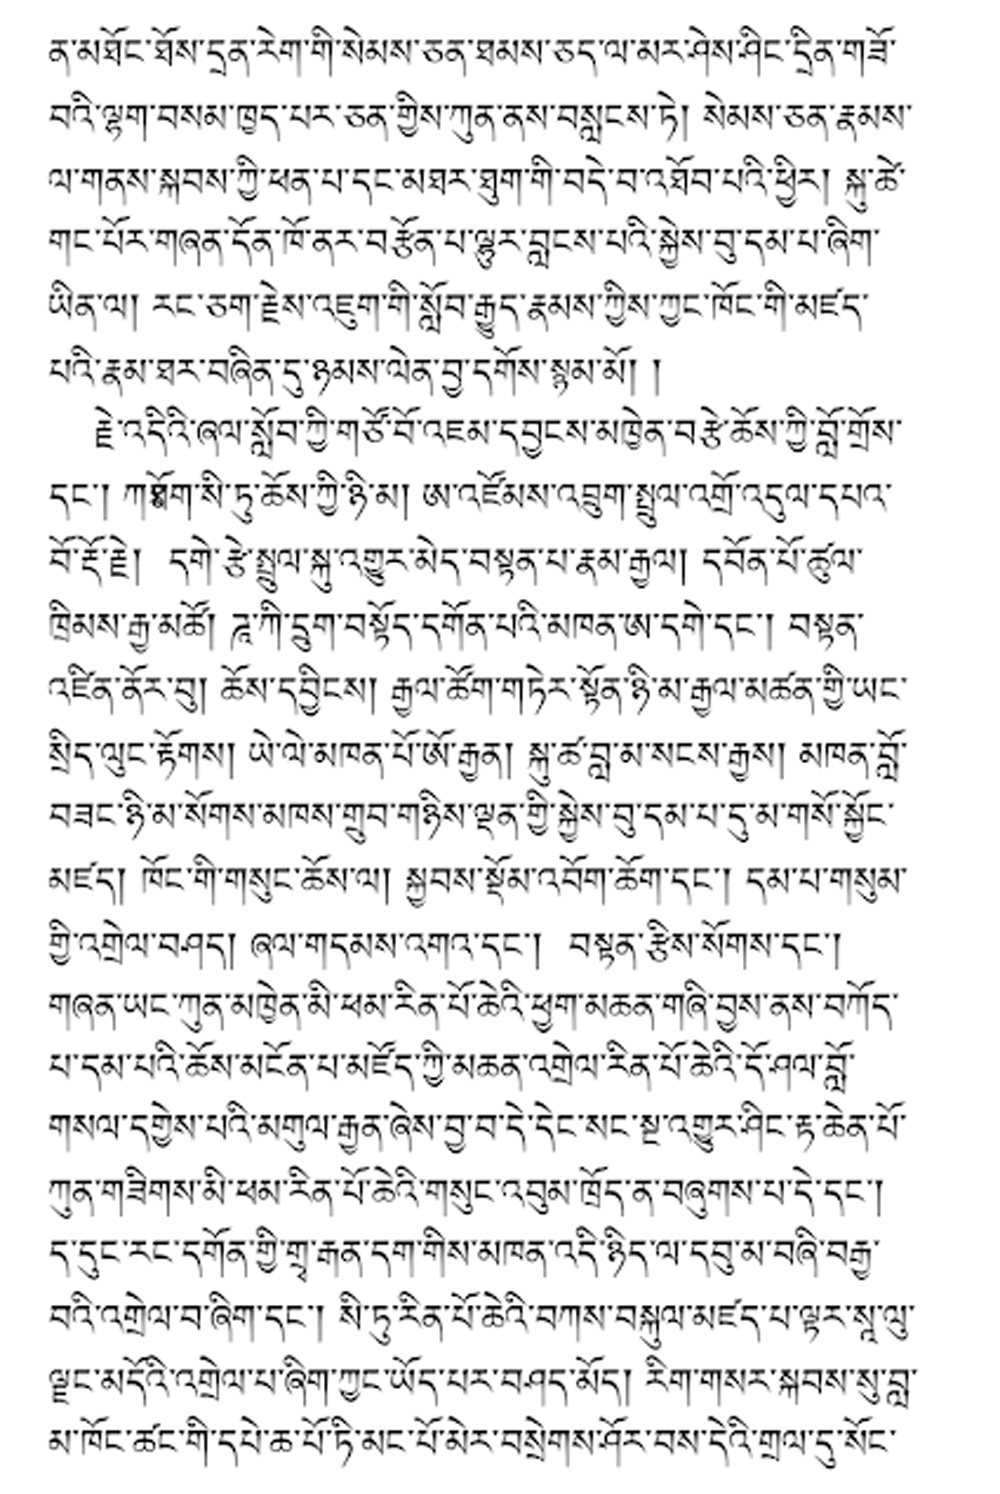 ན་མཐོང་ཐོས་དྲན་རེག་གི་སེམས་ཅན་ཐམས་ཅད་ལ་མར་ཤེས་ཤིང་དྲིན་གཟོ་
བའི་ལྷག་བསམ་ཁྱད་པར་ཅན་གྱིས་ཀུན་ནས་བསླངས་ཏེ། སེམས་ཅན་རྣམས་
ལ་གནས་སྐབས་ཀྱི་ཕན་པ་དང་མཐར་ཐུག་གི་བདེ་བ་འཐོབ་པའི་ཕྱིར། སྐུ་ཚེ་
གང་པོར་གཞན་དོན་ཁོ་ནར་བརྩོན་པ་ལྷུར་བླངས་པའི་སྐྱེས་བུ་དམ་པ་ཞིག་
ཡིན་ལ། རང་ཅག་རྗེས་འཇུག་གི་སློབ་རྒྱུད་རྣམས་ཀྱིས་ཀྱང་ཁོང་གི་མཛད་
པའི་རྣམ་ཐར་བཞིན་དུ་ཉམས་ལེན་བྱ་དགོས་སྙམ་མོ། །
རྗེ་འདིའི་ཞལ་སློབ་ཀྱི་གཙོ་བོ་འཇམ་དབྱངས་མཁྱེན་བརྩེ་ཆོས་ཀྱི་བློ་གྲོས་
དང་། ཀཿཐོག་སི་ཏུ་ཆོས་ཀྱི་ཉི་མ། ཨ་འཛོམས་འབྲུག་སྤྲུལ་འགྲོ་འདུལ་དཔའ་
བོ་རྡོ་རྗེ། དགེ་རྩེ་སྤྲུལ་སྐུ་འགྱུར་མེད་བསྟན་པ་རྣམ་རྒྱལ། དབོན་པོ་ཚུལ་
ཁྲིམས་རྒྱ་མཚོ། ཌཱ་ཀི་དྲུག་བསྟོད་དགོན་པའི་མཁན་ཨ་དགེ་དང་། བསྟན་
འཛིན་ནོར་བུ། ཆོས་དབྱིངས། རྒྱལ་ཚོག་གཏེར་སྟོན་ཉི་མ་རྒྱལ་མཚན་གྱི་ཡང་
སྲིད་ལུང་རྟོགས། ཡེ་ལེ་མཁན་པོ་ཨོ་རྒྱན། སྐུ་ཚ་བླ་མ་སངས་རྒྱས། མཁན་བློ་
བཟང་ཉི་མ་སོགས་མཁས་གྲུབ་གཉིས་ལྡན་གྱི་སྐྱེས་བུ་དམ་པ་དུ་མ་གསོ་སྐྱོང་
མཛད། ཁོང་གི་གསུང་ཆོས་ལ། སྐྱབས་སྡོམ་འབོག་ཆོག་དང་། དམ་པ་གསུམ་
གྱི་འགྲེལ་བཤད། ཞལ་གདམས་འགའ་དང་། བསྟན་རྩིས་སོགས་དང་།
གཞན་ཡང་ཀུན་མཁྱེན་མི་ཕམ་རིན་པོ་ཆེའི་ཕྱག་མཆན་གཞི་བྱས་ནས་བཀོད་
པ་དམ་པའི་ཆོས་མངོན་པ་མཛོད་ཀྱི་མཆན་འགྲེལ་རིན་པོ་ཆེའི་དོ་ཤལ་བློ་
གསལ་དགྱེས་པའི་མགུལ་རྒྱན་ཞེས་བྱ་བ་དེ་དེང་སང་སྔ་འགྱུར་ཤིང་རྟ་ཆེན་པོ་
ཀུན་གཟིགས་མི་ཕམ་རིན་པོ་ཆེའི་གསུང་འབུམ་ཁྲོད་ན་བཞུགས་པ་དེ་དང་།
ད་དུང་རང་དགོན་གྱི་གྲྭ་རྒན་དག་གིས་མཁན་འདི་ཉིད་ལ་དབུ་མ་བཞི་བརྒྱ་
བའི་འགྲེལ་བ་ཞིག་དང་། སི་ཏུ་རིན་པོ་ཆེའི་བཀས་བསྐུལ་མཛད་པ་ལྟར་སཱ་ལུ་
ལྗང་མདོའི་འགྲེལ་པ་ཞིག་ཀྱང་ཡོད་པར་བཤད་མོད། རིག་གསར་སྐབས་སུ་བླ་
མ་ཁོང་ཚང་གི་དཔེ་ཆ་པོ་ཏི་མང་པོ་མེར་བསྲེགས་ཤོར་བས་དེའི་གྲལ་དུ་སོང་